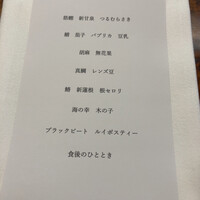 新甘泉 つるむらさき
鱧 茄子 パプリカ 豆乳
胡麻 無花果
真鯛 レンズ豆
鱧 新蓮根 根セロリ
海の幸 木の子
ブラックビート ルイボスティー
食後のひととき